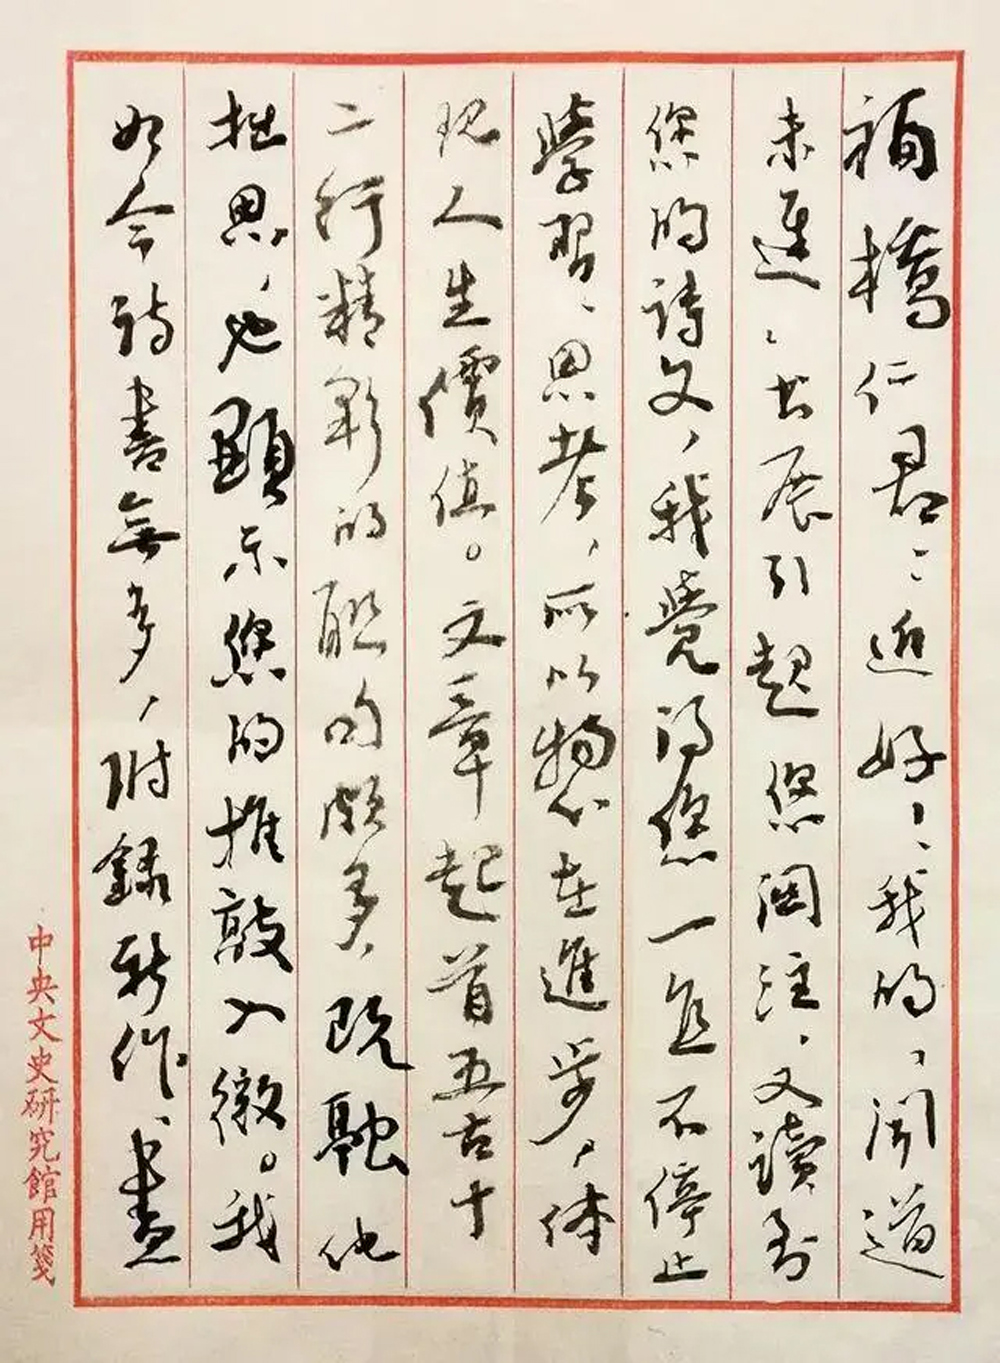 福橋仁君：近好！我的《聞道
未遲》書展引起您關注，又讀到
您的詩文，我覺得您一直不停止
學習、思考，所以總在進步，体
現人生價值。文章起首五古十
二行精彩的聯句頗多，既融他
拙思，也顯示您的推敲入微。我
如今詩書無多，附錄新作，書
中央文史研究館用箋